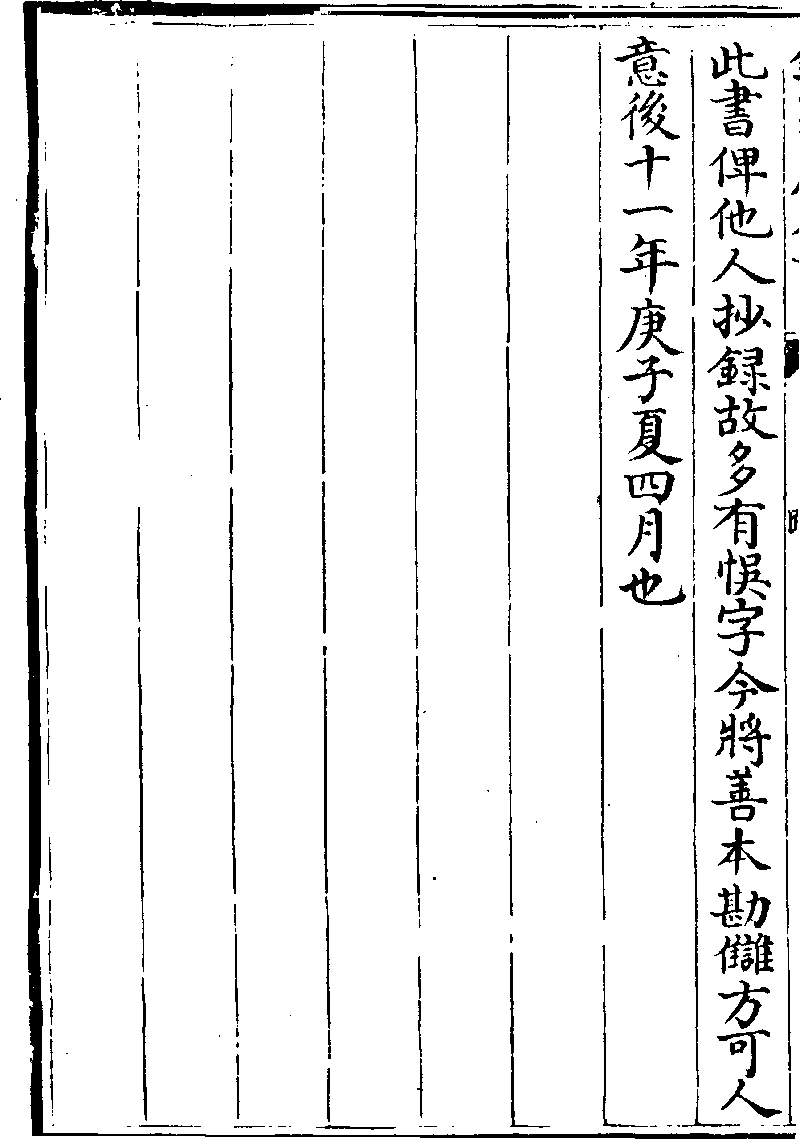 此書俾他人抄録故多有悮字今將善本勘讎方可人
意後十一年庚子夏四月也